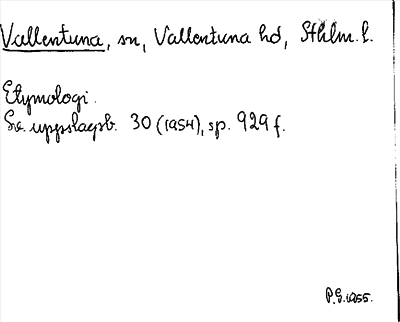 Vallentuna, sn, Vallentuna hd, Sthlm. l.
Etymologi.
Sv. uppslagsb. 30 (1954), sp. 929 f.
P.G. 1955.